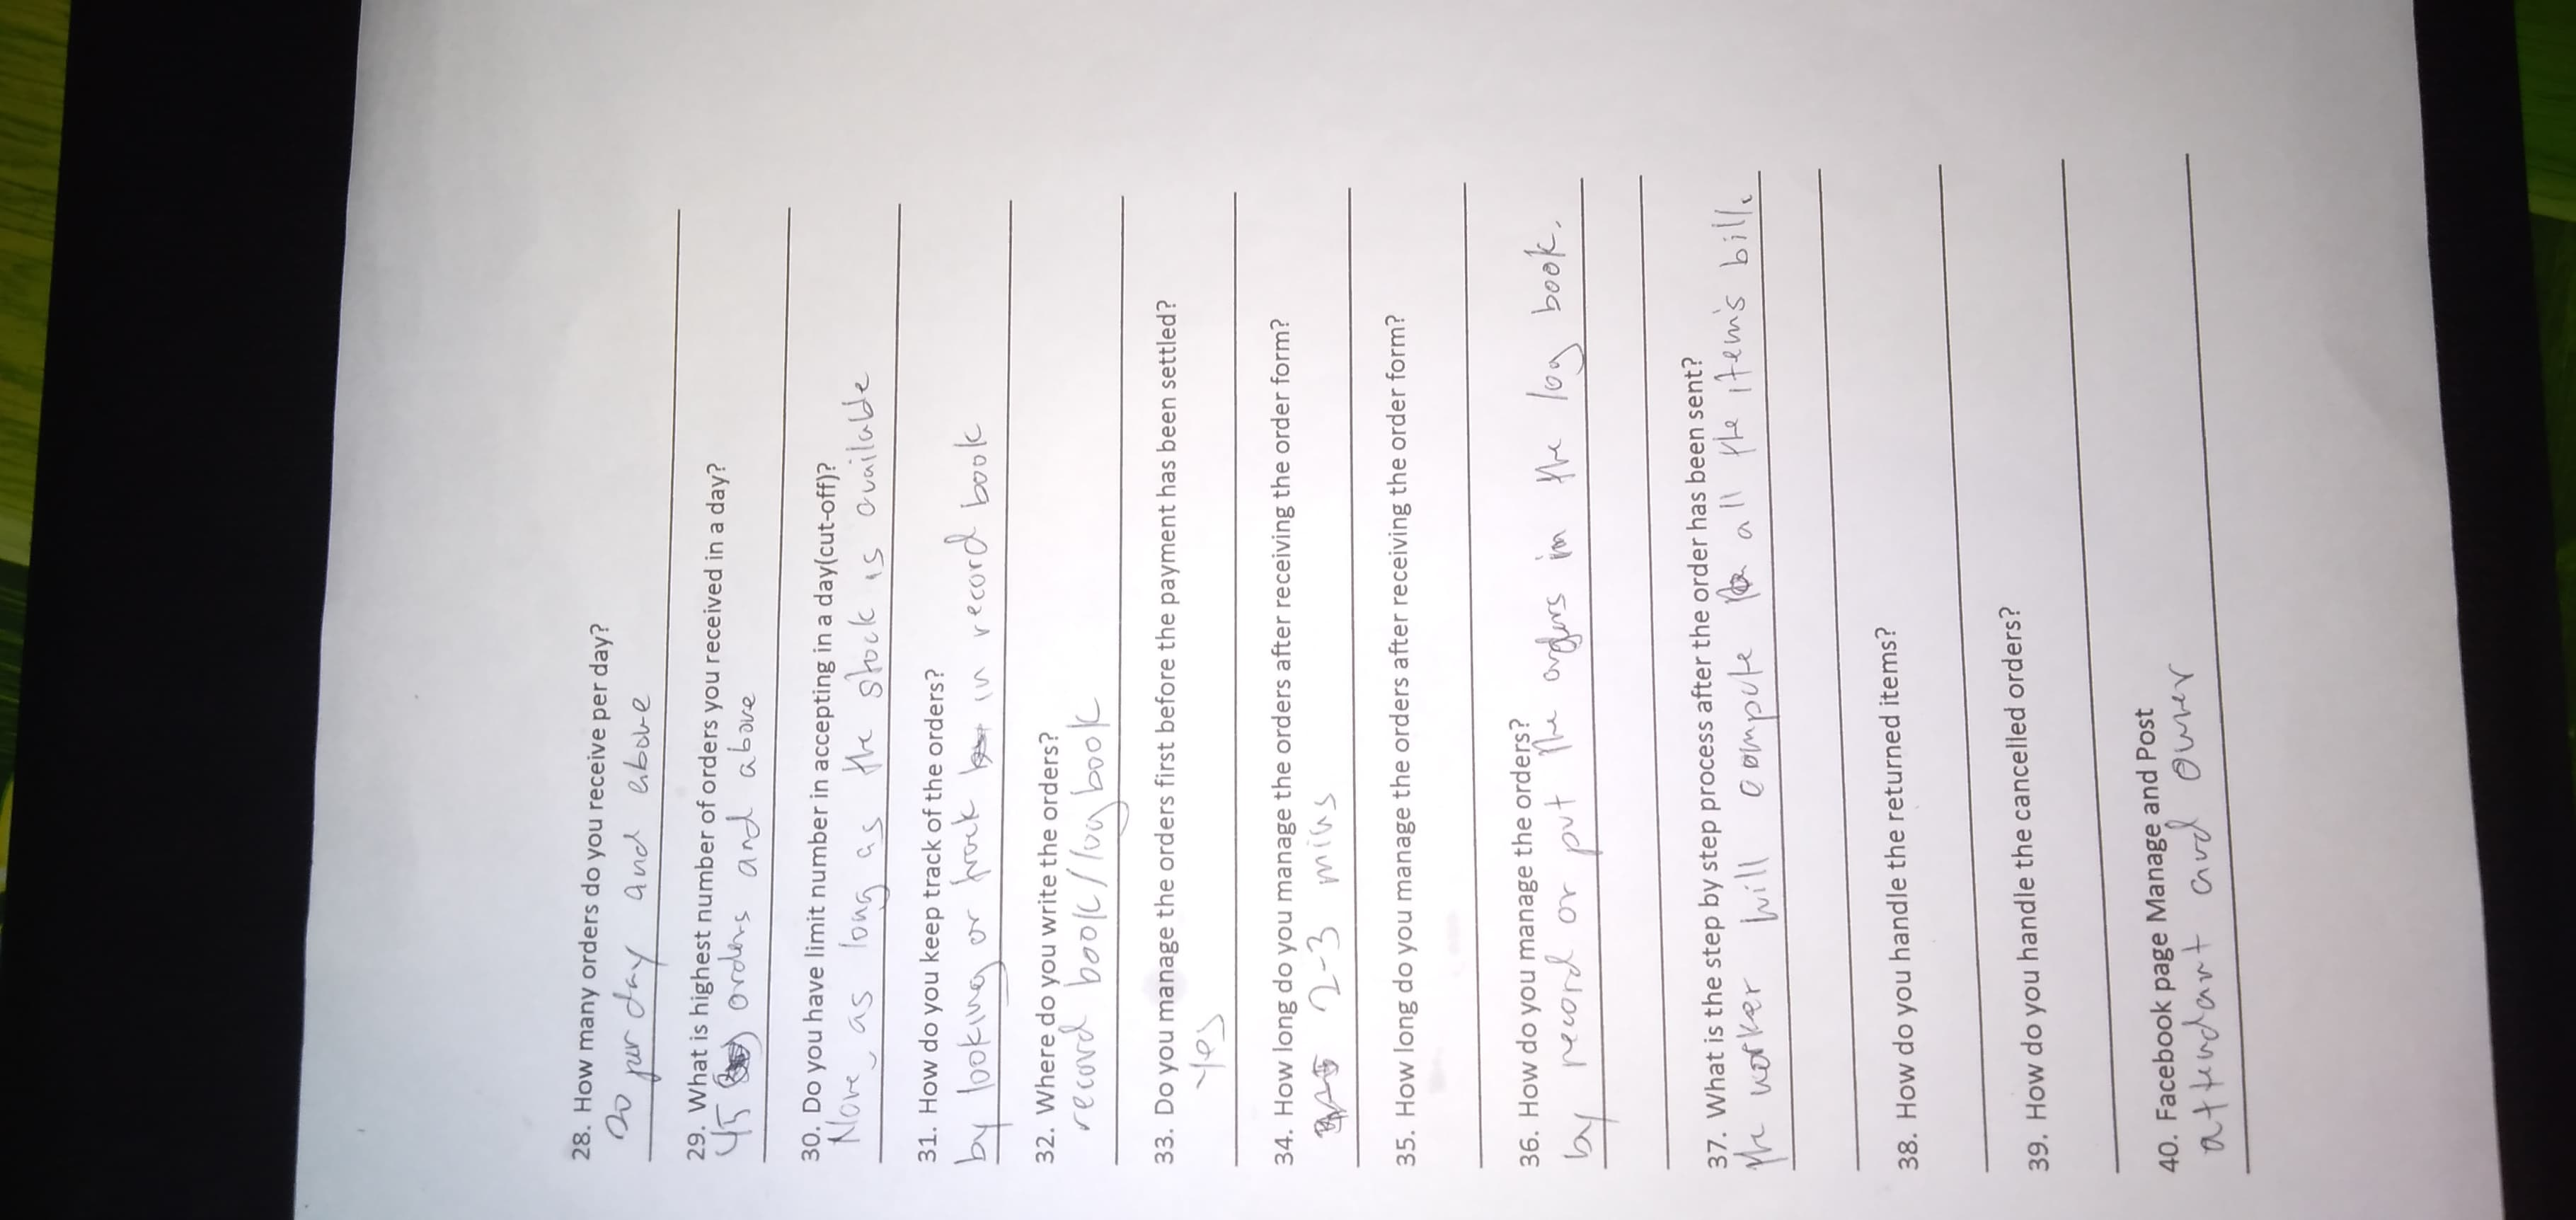 28. How many orders do you receive per day?
per day and above
29. What is highest number of orders you received in a day?
45 orders and above
30. Do you have limit number in accepting in a day(cut-off)?
None, as long as the stock is available
31. How do you keep track of the orders?
by looking or track in record book
32. Where do you write the orders?
record book/logbook
33. Do you manage the orders first before the payment has been settled?
Yes
34. How long do you manage the orders after receiving the order form?
2-3 mins
35. How long do you manage the orders after receiving the order form?
36. How do you manage the orders?
by record or put the orders in the log book.
37. What is the step by step process after the order has been sent?
the worker will compute all the item's bill.
38. How do you handle the returned items?
39. How do you handle the cancelled orders?
40. Facebook page Manage and Post
attendant and owner